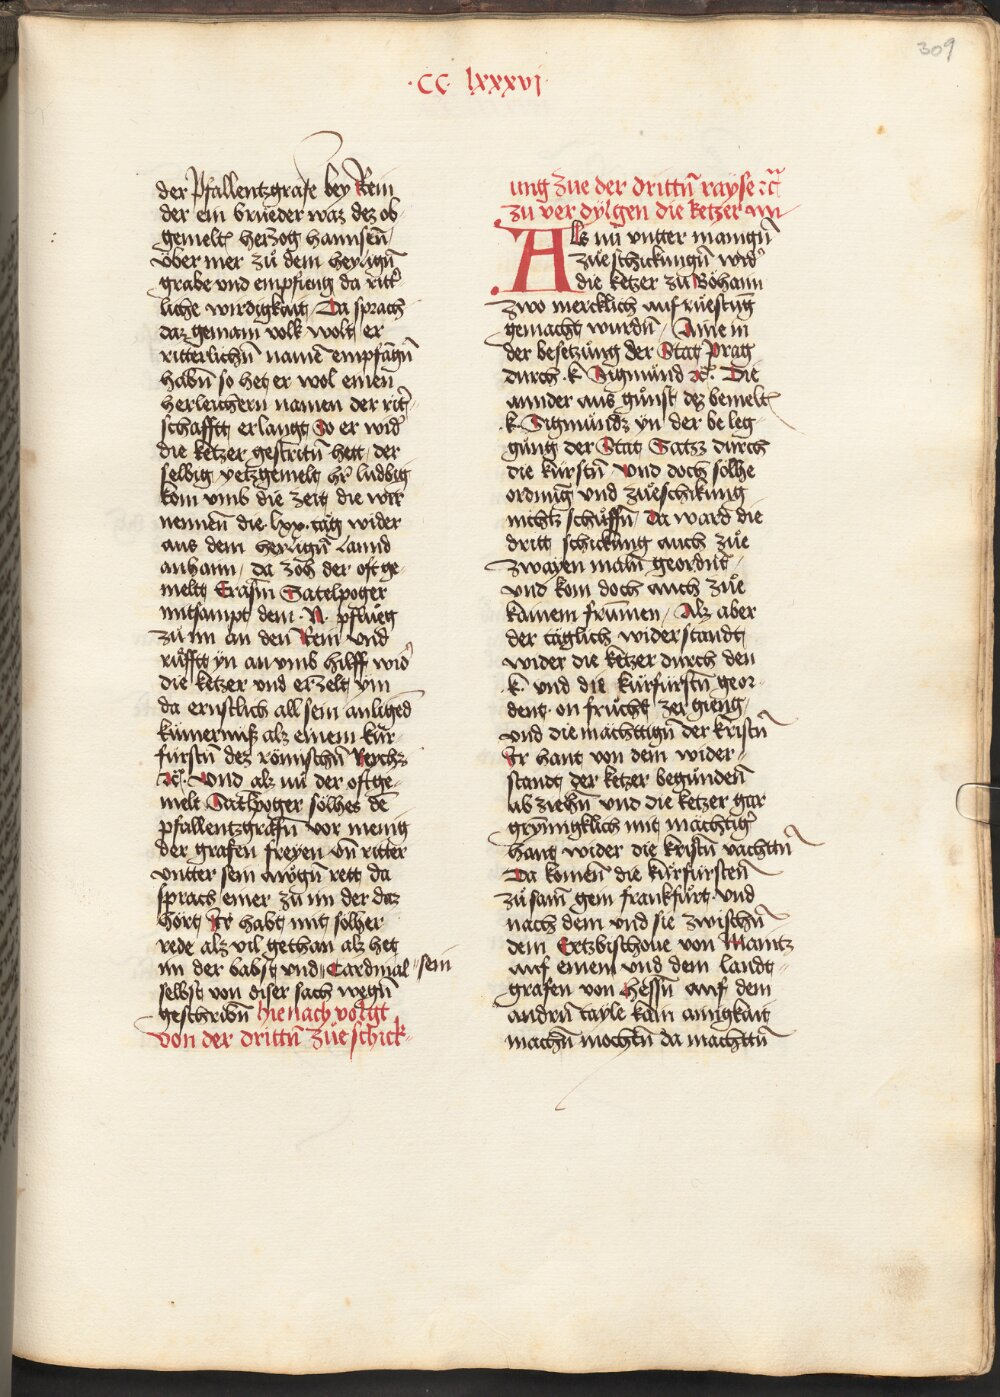 309
·CC· lxxxvj·
der Pfallentzgrafe bey Rein
der ein brueder waz dez ob-
gemelt herzog hannsen
vber mer zu dem heyligñ
grabe vnd empfieng da ritt̄
liche wirdigkait / Da sprach
daz gemain volk wolt er
ritterlichñ namē empfāgñ
habñ so het er wol einen
herleichern namen der ritt̄-
schafft erlangt So er wid̄
die ketzer gestrittñ hett / der
selbig yetzgemelt hr̄ ludbig
kom vmb die zeit die wir
nennen die lxx tag wider
aus dem heyligñ lannd
anhaim / da zoh der oftge-
melt Erasm Satelpoger
mitsampt dem N. pflueg
zu im an den Rein vnd
rufft yn an vmb hilff wid̄
die ketzer vnd erzelt ym
da ernstlich all sein anliged
kümernuß alz einem kur-
fürstñ dez römischñ Reychz
etc̄. Vnd alz nu der oftge-
melt Satlpoger sölhes dē
pfallentzgrafñ vor menig
der grafen freyen vñ ritter
vntter sein awgñ rett da
sprach einer zu im der daz
hört Ir habt mit sölher
rede alz vil gethan alz het
im der babst vnd Cardinal sein
selbst von diser sach wegñ
geschribñ hienach volgt
von der drittñ zueschick-
ung zue der drittñ rayse etc̄
zu ver dylgen die ketzer
Als nu vntter manigñ
zueschickungñ wid̄
die ketzer zu Böhaim
zwo mercklich aufruestūg
gemacht wurdñ / Aine in
der besetzung der Stat Prag
durch k Sigmund etc̄. Die
annder aus gunst dez bemelt
k. Sigmundz yn der beleg-
gung der Stat Satzz durch
die kurstñ Vnd doch sölhe
ordnūg vnd zueschikung
nichtz schuffñ / Da ward die
dritt schickung auch zue
zwayen maln geordnt
vnd kom doch auch zue
kainem frumen / Alz aber
der täglich widerstandt
wider die ketzer durch den
k. vnd die kurfurstñ geor-
dent on frücht zergieng
vnd die mächttigñ der kristñ
Ir hant von dem wider-
standt der ketzer begunden
abziehñ vnd die ketzer gar
grymigklich mit mächtiḡ
hant wider die kristñ vachttñ
Da komen die kurfursten
zu sam gein frankfurt vnd
nach dem vnd sie zwischñ
dem Ertzbischoue von Maintz
auf einem vnd dem landt-
grafen von Hessñ auf dem
andrñ tayle kain ainigkait
machñ mochtñ da machttñ